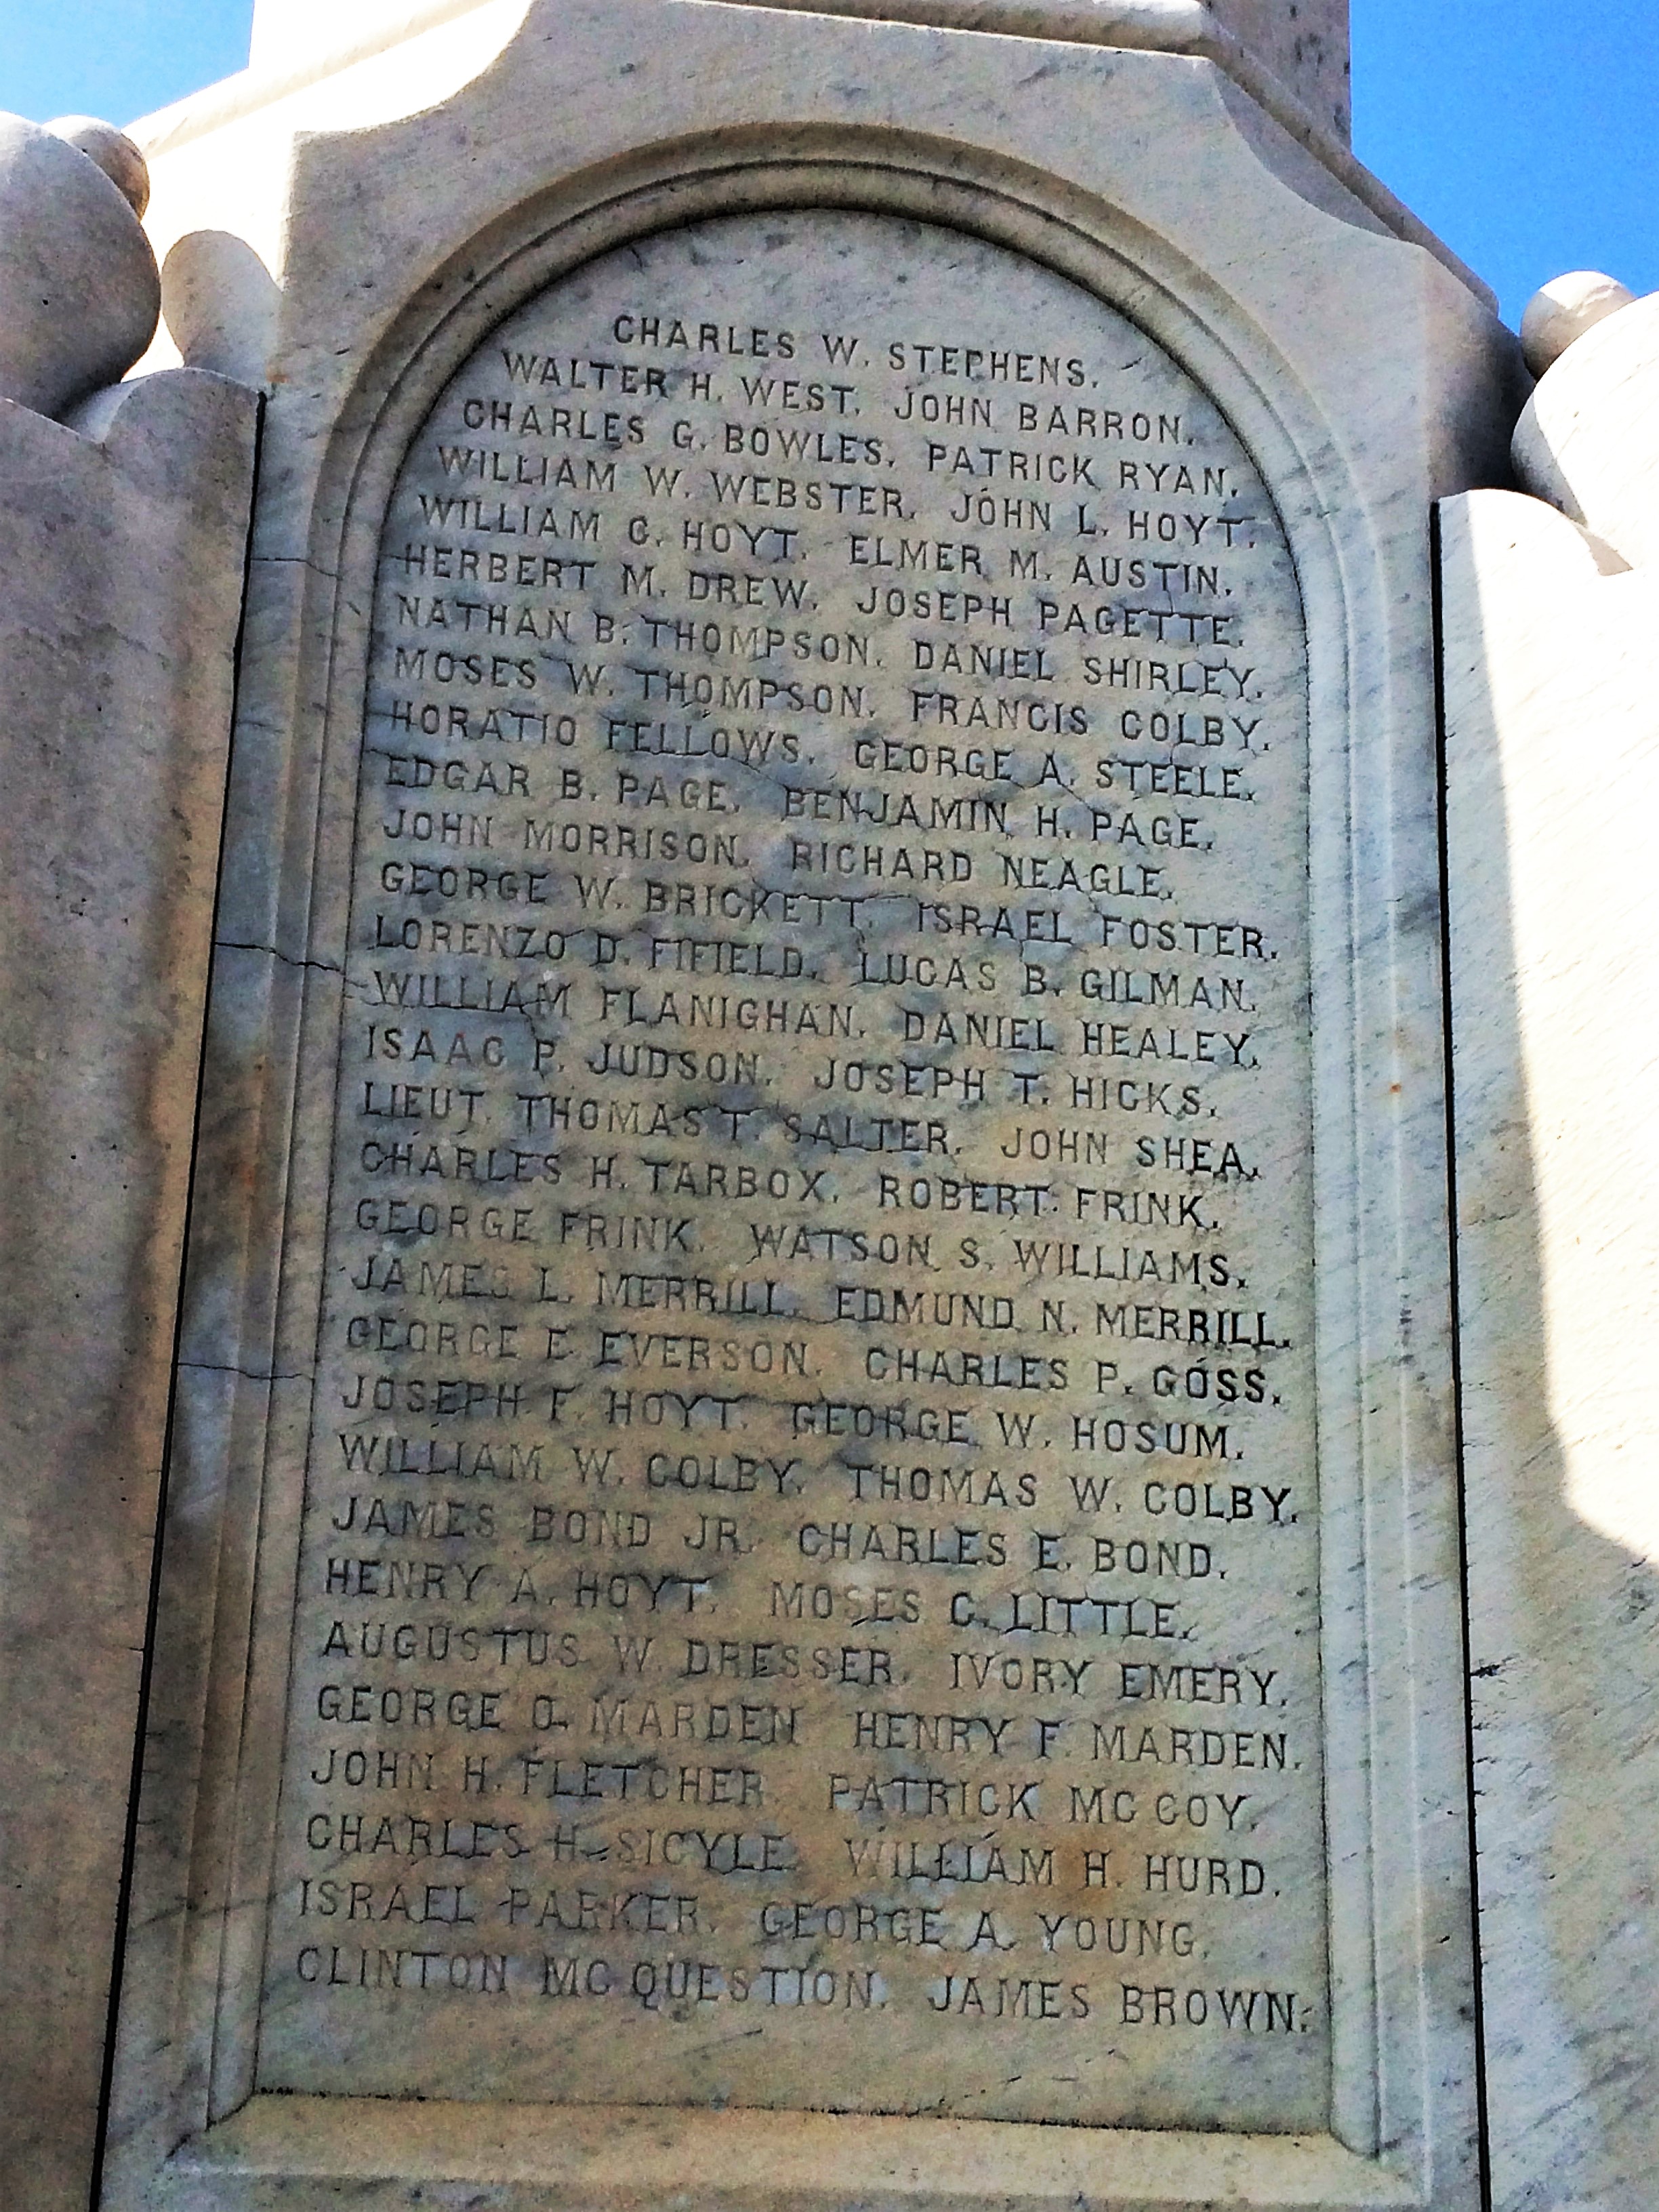 CHARLES W. STEPHENS.
WALTER H. WEST. JOHN BARRON.
CHARLES G. BOWLES. PATRICK RYAN.
WILLIAM W. WEBSTER. JOHN L. HOYT.
WILLIAM C. HOYT. ELMER M. AUSTIN.
HERBERT M. DREW. JOSEPH PAGETTE.
NATHAN B. THOMPSON. DANIEL SHIRLEY.
MOSES W. THOMPSON. FRANCIS COLBY.
HORATIO FELLOWS. GEORGE A. STEELE.
EDGAR B. PAGE. BENJAMIN H. PAGE.
JOHN MORRISON. RICHARD NEAGLE.
GEORGE W. BRICKETT. ISRAEL FOSTER.
LORENZO D. FIFIELD. LUCAS B. GILMAN.
WILLIAM FLANIGHAN. DANIEL HEALEY.
ISAAC P. JUDSON. JOSEPH T. HICKS.
LIEUT. THOMAS T. SALTER. JOHN SHEA.
CHARLES H. TARBOX. ROBERT FRINK.
GEORGE FRINK. WATSON S. WILLIAMS.
JAMES L. MERRILL. EDMUND N. MERRILL.
GEORGE E. EVERSON. CHARLES P. GOSS.
JOSEPH F. HOYT. GEORGE W. HOSUM.
WILLIAM W. COLBY. THOMAS W. COLBY.
JAMES BOND JR. CHARLES E. BOND.
HENRY A. HOYT. MOSES C. LITTLE.
AUGUSTUS W. DRESSER. IVORY EMERY.
GEORGE O. MARDEN HENRY F. MARDEN.
JOHN H. FLETCHER. PATRICK MC COY.
CHARLES H. SICYLE. WILLIAM H. HURD.
ISRAEL PARKER. GEORGE A. YOUNG.
CLINTON MC QUESTION. JAMES BROWN.